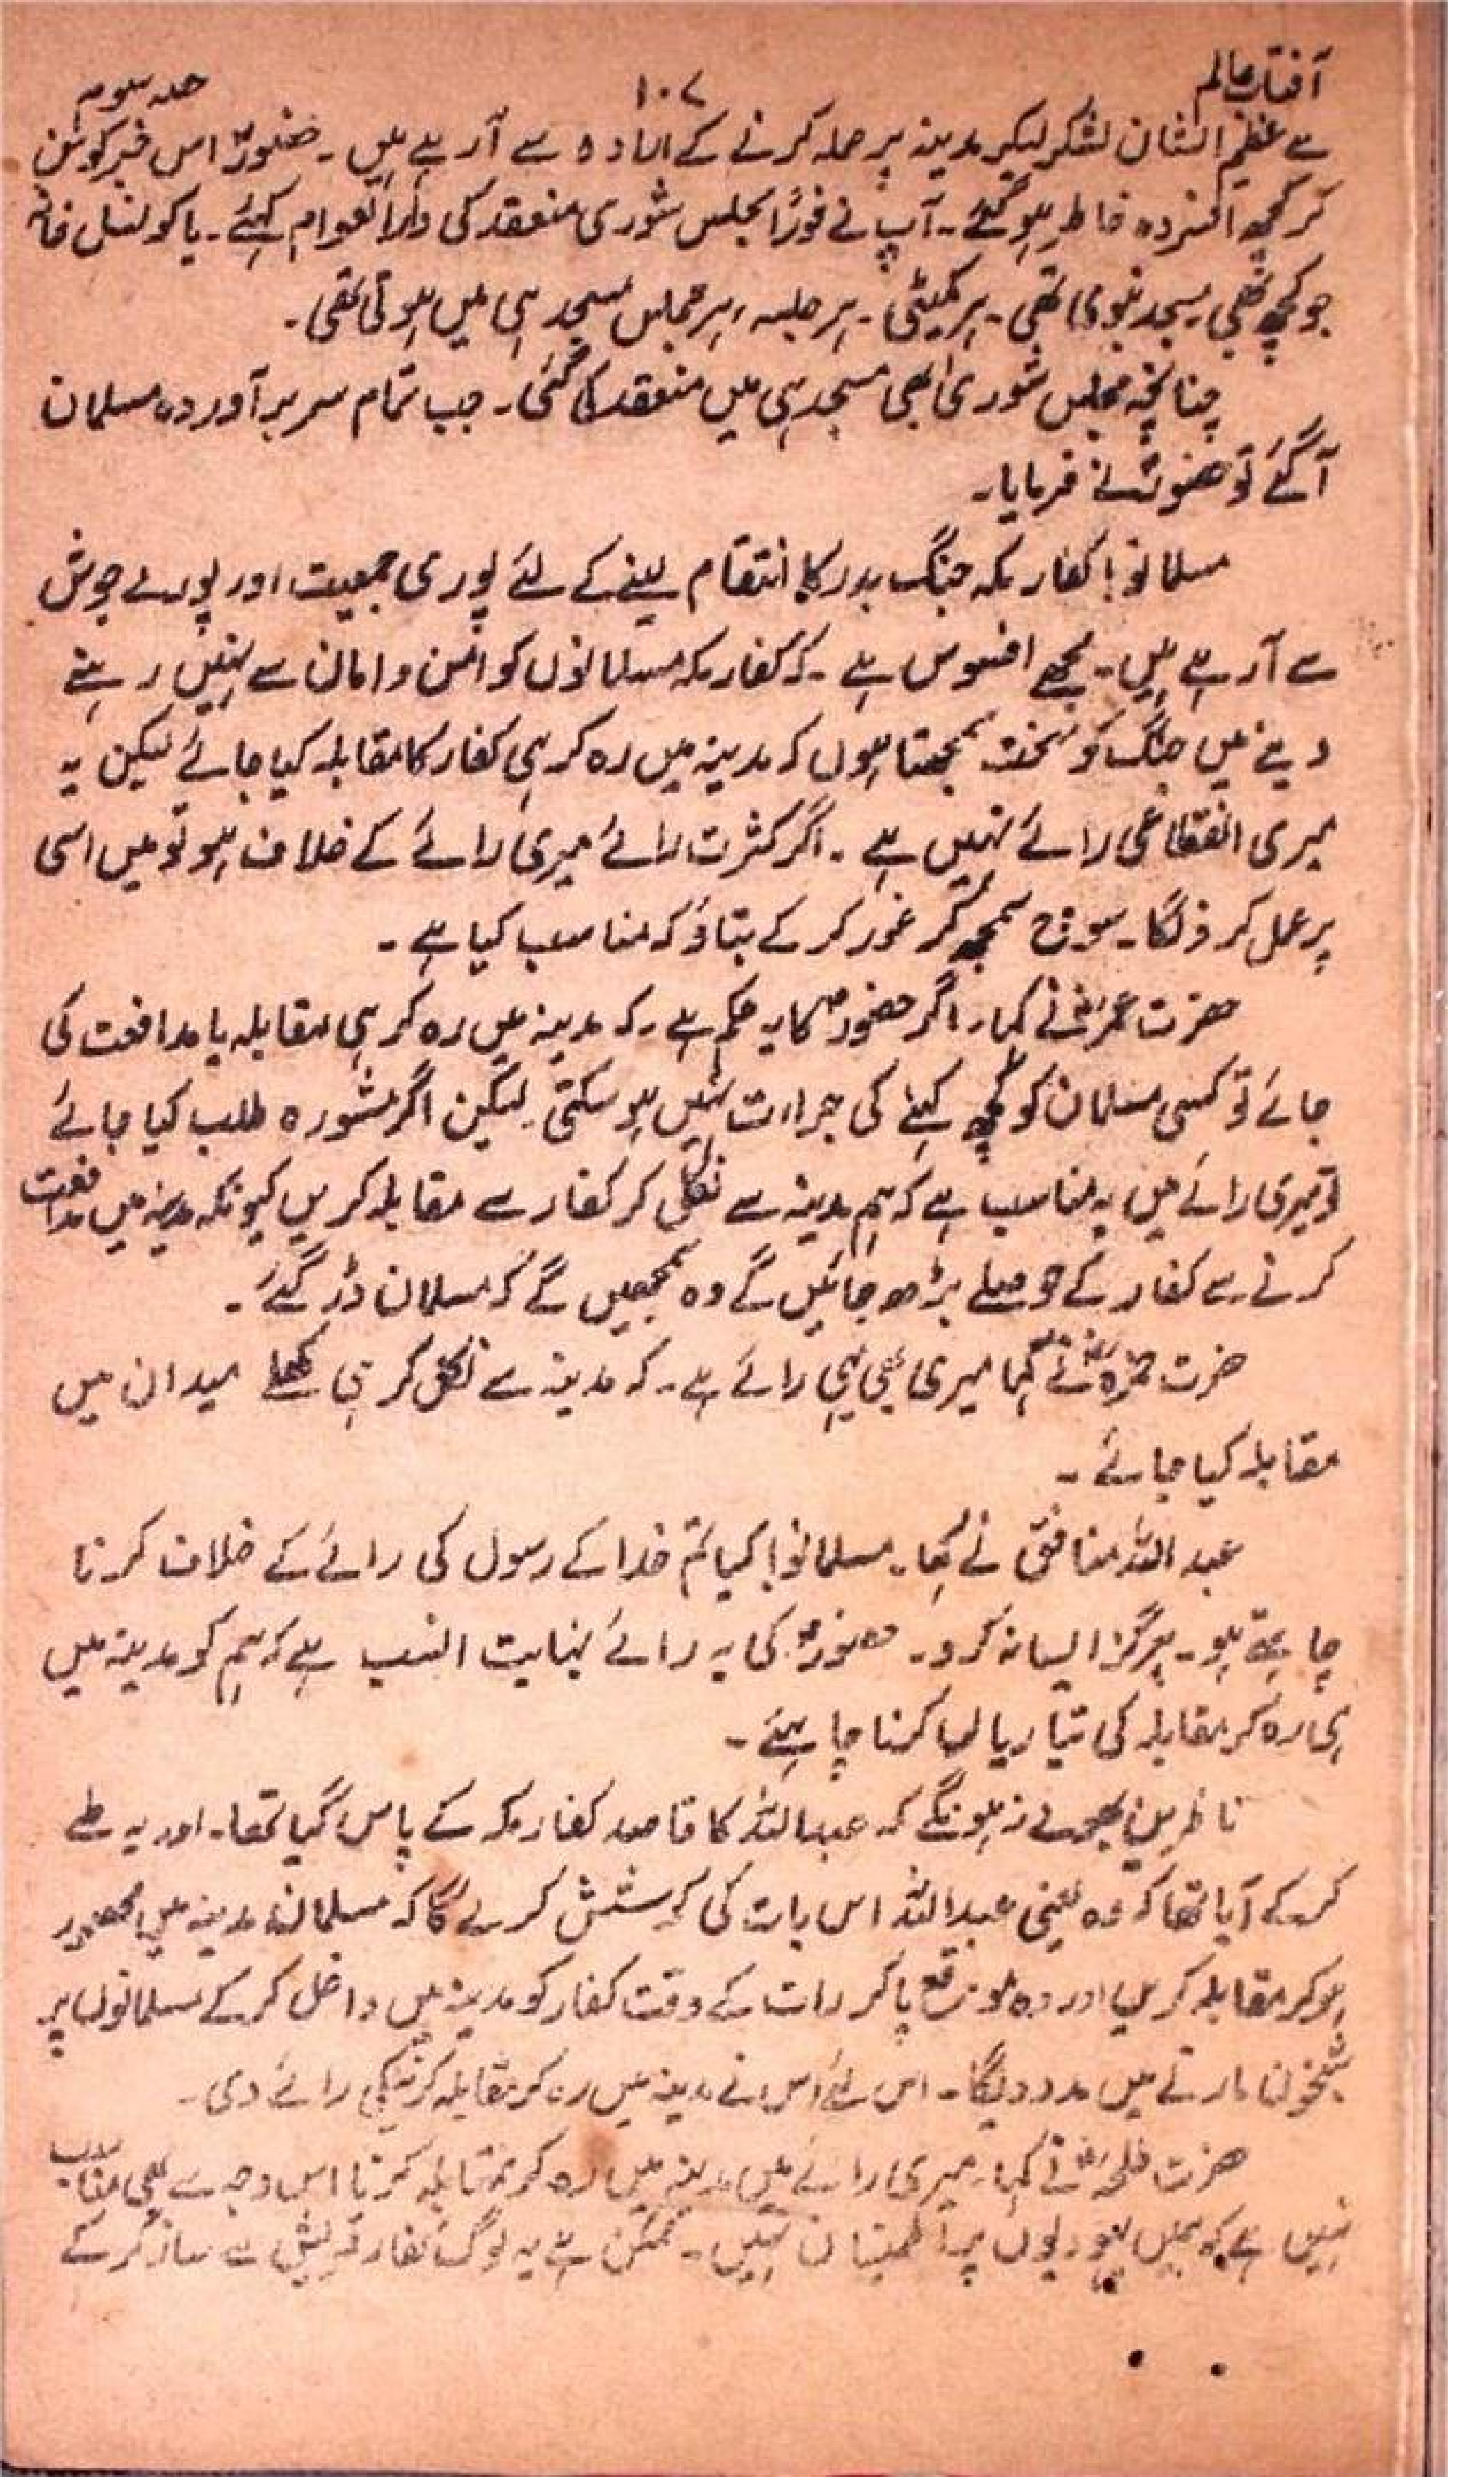 آفتاب عالم ۱۰۷ حصہ سوم
سے عظیم الشان لشکر لیکر مدینہ پر حملہ کرنے کے ارادہ سے آ رہے ہیں۔ حضورؐ اس خبر کو سُن
کر کچھ افسردہ خاطر ہو گئے۔ آپ نے فوراً مجلس شوریٰ منعقد کی دارالعوام کہئے۔ یا کونسل خانہ
جو کچھ تھی مسجد نبوی تھی۔ ہر کمیٹی۔ ہر جلسہ، ہر مجلس مسجد ہی میں ہوتی تھی۔
چنانچہ مجلس شوریٰ بھی مسجد ہی میں منعقد کی گئی۔ جب تمام سربرآوردہ مسلمان
آ گئے تو حضورؐ نے فرمایا۔
مسلمانو! کفار مکہ جنگ بدر کا انتقام لینے کے لئے پوری جمعیت اور پورے جوش
سے آ رہے ہیں۔ مجھے افسوس ہے۔ کہ کفار مکہ مسلمانوں کو امن و امان سے نہیں رہنے
دیتے میں جنگ کو سمجھتا ہوں کہ مدینہ میں رہ کر ہی کفار کا مقابلہ کیا جائے لیکن یہ
میری انقطاعی رائے نہیں ہے۔ اگر کثرت رائے میری رائے کے خلاف ہو تو میں اسی
پر عمل کرونگا۔ سوچ سمجھ کر غور کر کے بتاؤ کہ مناسب کیا ہے۔
حضرت عمرؓ نے کہا۔ اگر حضورؐ کا یہ حکم ہے۔ کہ مدینہ میں رہ کر ہی مقابلہ یا مدافعت کی
جائے تو کسی مسلمان کو کچھ کہنے کی جراءت نہیں ہو سکتی۔ لیکن اگر مشورہ طلب کیا جائے
تو میری رائے میں یہ مناسب ہے کہ ہم مدینہ سے نکل کر کفار سے مقابلہ کریں کیونکہ مدینہ میں مدافعت
کرنے سے کفار کے حوصلے بڑھ جائیں گے وہ سمجھیں گے کہ مسلمان ڈر گئے۔
حضرت حمزہؓ نے کہا میری بھی یہی رائے ہے۔ کہ مدینہ سے نکل کر ہی کھلے میدان میں
مقابلہ کیا جائے۔
عبداللہ منافق نے کہا۔ مسلمانو! کیا تم خدا کے رسول کی رائے کے خلاف کرنا
چاہتے ہو۔ ہرگز ایسا نہ کرو۔ حضورؐ کی یہ رائے نہایت انسب ہے کہ ہم کو مدینہ میں
ہی رہ کر مقابلہ کی تیاریاں کرنا چاہیئے۔
ناظرین بھولے نہ ہونگے کہ عبداللہ کا قاصد کفار مکہ کے پاس گیا تھا۔ اور یہ طے
کر کے آیا تھا کہ وہ یعنی عبداللہ اس بات کی کوشش کرے گا کہ مسلمان مدینہ میں محصور
ہو کر مقابلہ کریں اور وہ موقع پا کر رات کے وقت کفار کو مدینہ میں داخل کر کے مسلمانوں پر
شبخون مارنے میں مدد دیگا۔ اس لئے اس نے مدینہ میں رہ کر مقابلہ کرنیکی رائے دی۔
حضرت طلحہؓ نے کہا۔ میری رائے میں مدینہ میں رہ کر مقابلہ کرنا اس وجہ سے بھی مناسب
نہیں ہے کہ ہمیں یہودیوں پر اطمینان نہیں۔ ممکن ہے یہ لوگ کفار قریش سے ساز کر کے